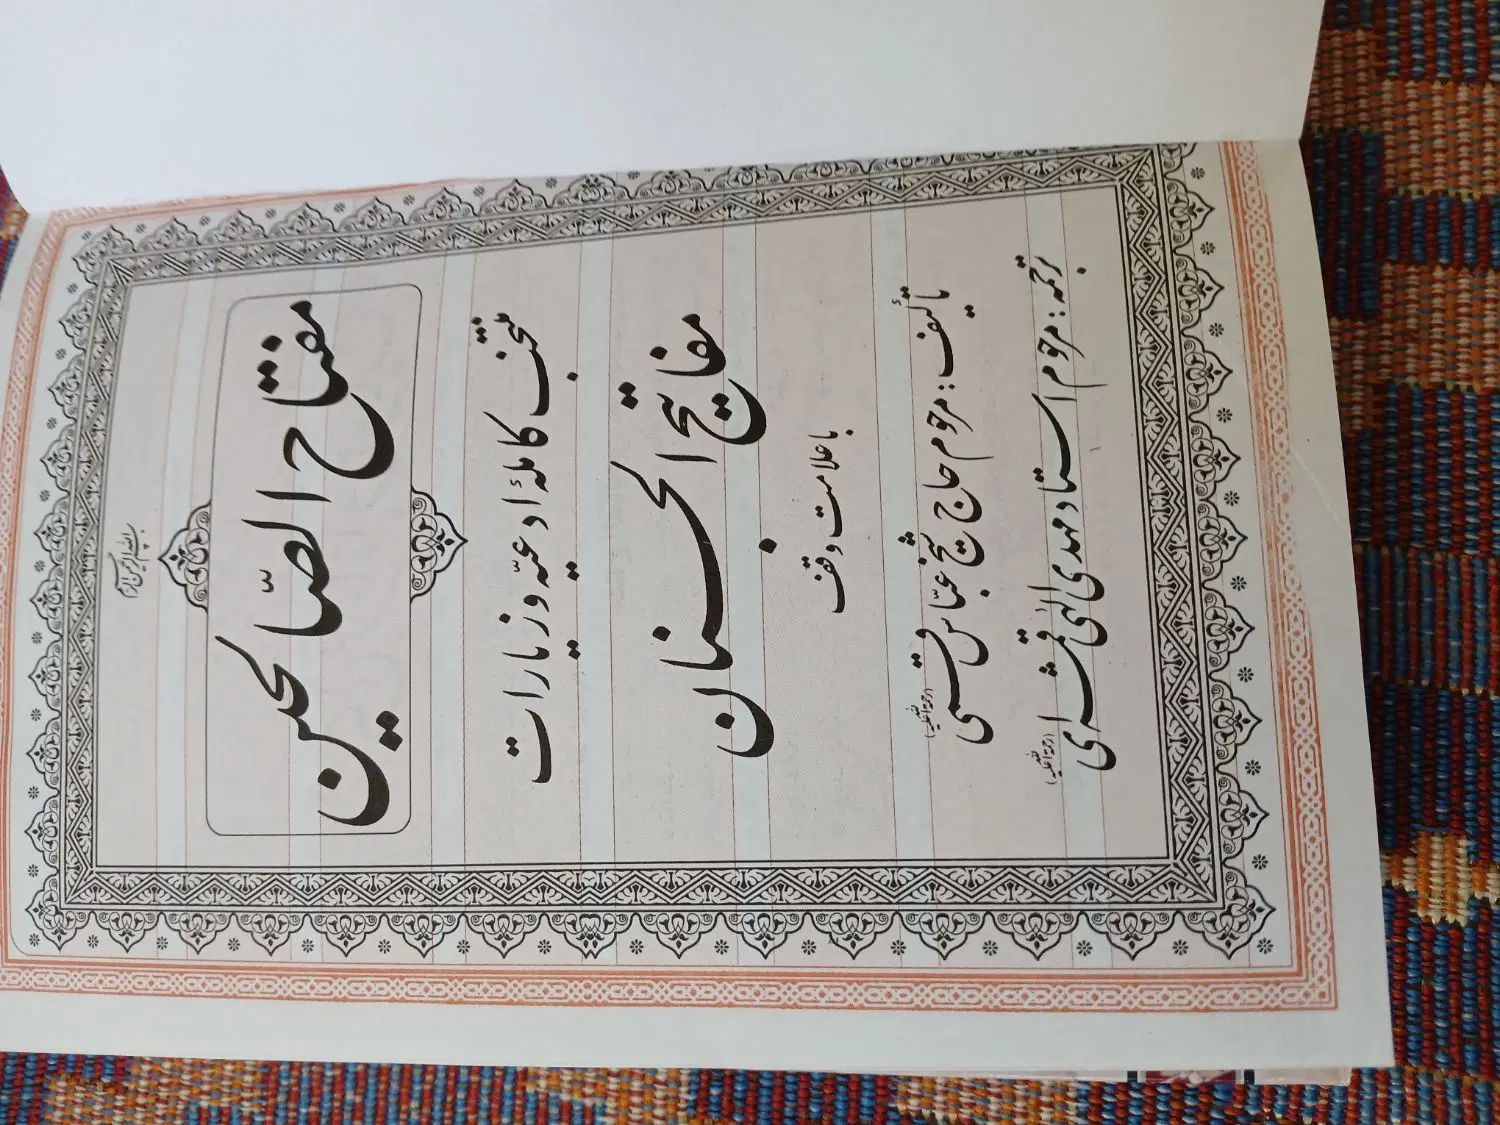 بسم الله الرحمن الرحیم
مفتاح الصّالحین
منتخب کاملهٔ ادعیّه و زیارات
مفاتیح الجنان
با علامت وقف
تألیف : مرحوم حاج شیخ عبّاس قمی (رحمة الله علیه)
ترجمه : مرحوم استاد مهدی الهی قمشه‌ای (رحمة الله علیه)